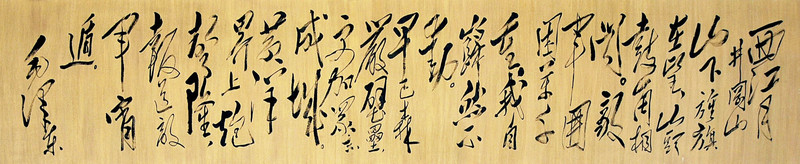 西江月
井岡山
山下旌旗
在望山頭
鼓角相
聞。敵
軍圍
困萬千
重我自
巋然不
動。
早已森
嚴壁壘
更加眾志
成城。
黃洋
界上炮
聲隆
報道敵
軍宵
遁。
毛澤東